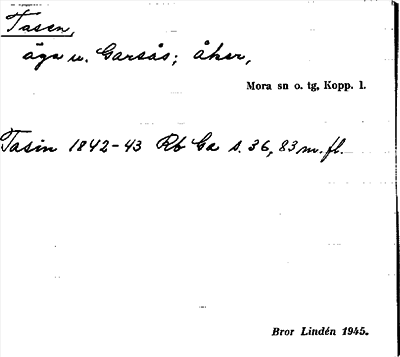 Tasen,
äga u. Garsås; åker,
Mora sn o. tg, Kopp. l.
Tasin 1842-43 Rb Ga s. 36, 83 m. fl.
Bror Lindén 1945.